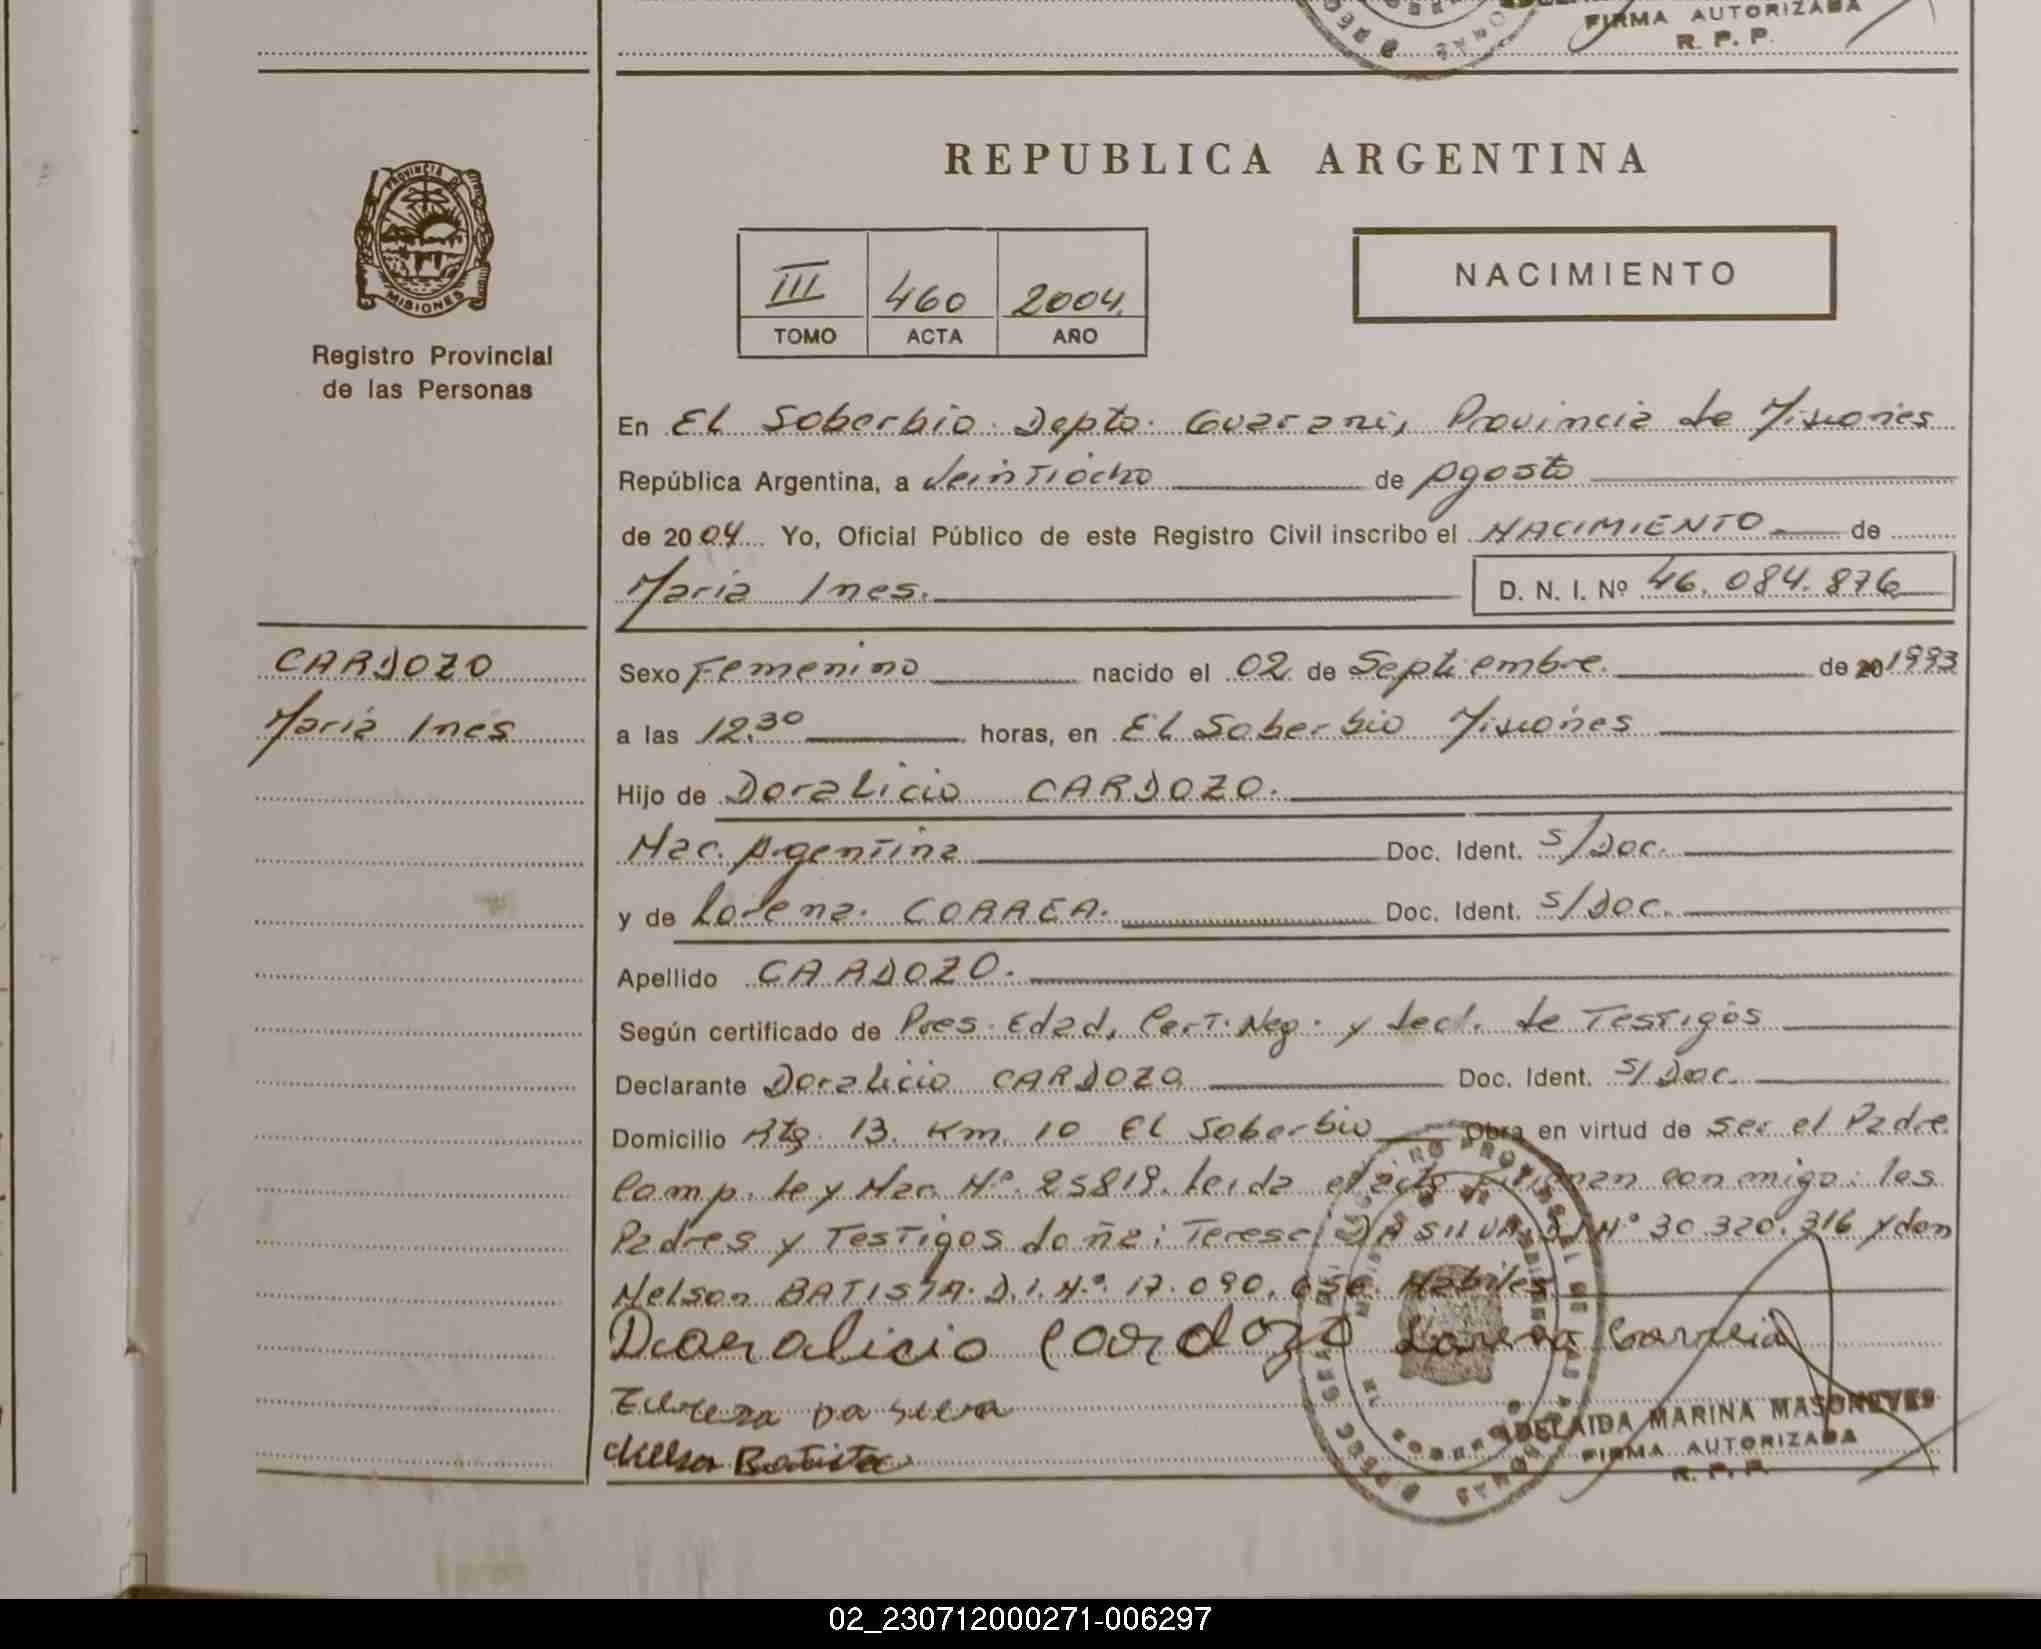 FIRMA AUTORIZADA
R. P. P.
PROVINCIA DE
MISIONES
Registro Provincial
de las Personas
CARDOZO
Maria Ines
REPUBLICA ARGENTINA
III 460 2004.
TOMO ACTA AÑO
NACIMIENTO
En El Soberbio Depto. Guarani, Provincia de Misiones
República Argentina, a Veintiocho de Agosto
de 2004 Yo, Oficial Público de este Registro Civil inscribo el NACIMIENTO de
Maria Ines. D. N. I. Nº 46.084.876
Sexo Femenino nacido el 02 de Septiembre. de 20 1993
a las 12.30 horas, en El Soberbio Misiones
Hijo de Doralicio CARDOZO.
Nac. Argentina Doc. Ident. S/Doc.
y de Lorena CORREA. Doc. Ident. S/Doc.
Apellido CARDOZO.
Según certificado de Pres. Edad, Cert. Neg. y decl. de Testigos
Declarante Doralicio CARDOZO Doc. Ident. S/Doc.
Domicilio Rta. 13. Km. 10 El Soberbio Obra en virtud de ser el Padre
Comp. Ley Nac. Nº 25819. Leida el acta firman conmigo: los
Padres y Testigos doña: Teresa DA SILVA D.I.Nº 30.320.316 y don
Nelson BATISTA. D.I.Nº. 17.090.650. Habiles
Doralicio Cardozo Lorena Correia
Tereza da Silva
Nelson Batista
ADELAIDA MARINA MASONEVES
FIRMA AUTORIZADA
R. P. P.
02_230712000271-006297